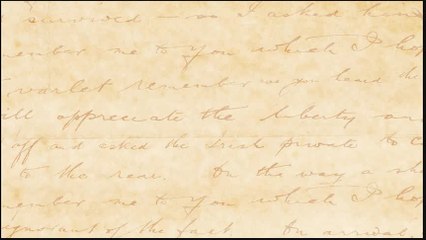 survived — so I asked him
member me to you which I hop
varlet remember me you lend the
ill appreciate the liberty an
off and asked the Irish private to c
to the rear. On the way a she
member me to you which I hop
ignorant of the fact. On arrival,